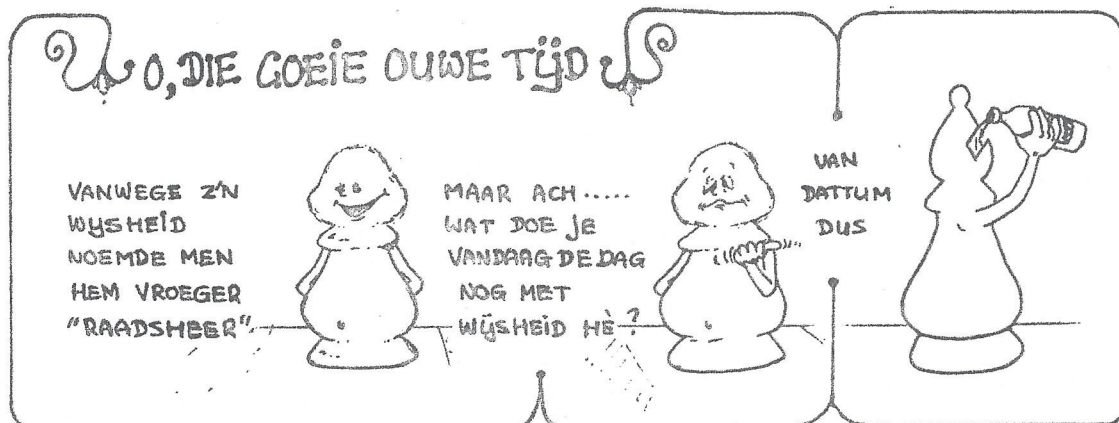 O, DIE GOEIE OUWE TIJD
VANWEGE Z'N
WIJSHEID
NOEMDE MEN
HEM VROEGER
"RAADSHEER"
MAAR ACH.....
WAT DOE JE
VANDAAG DE DAG
NOG MET
WIJSHEID HÈ?
VAN
DATTUM
DUS